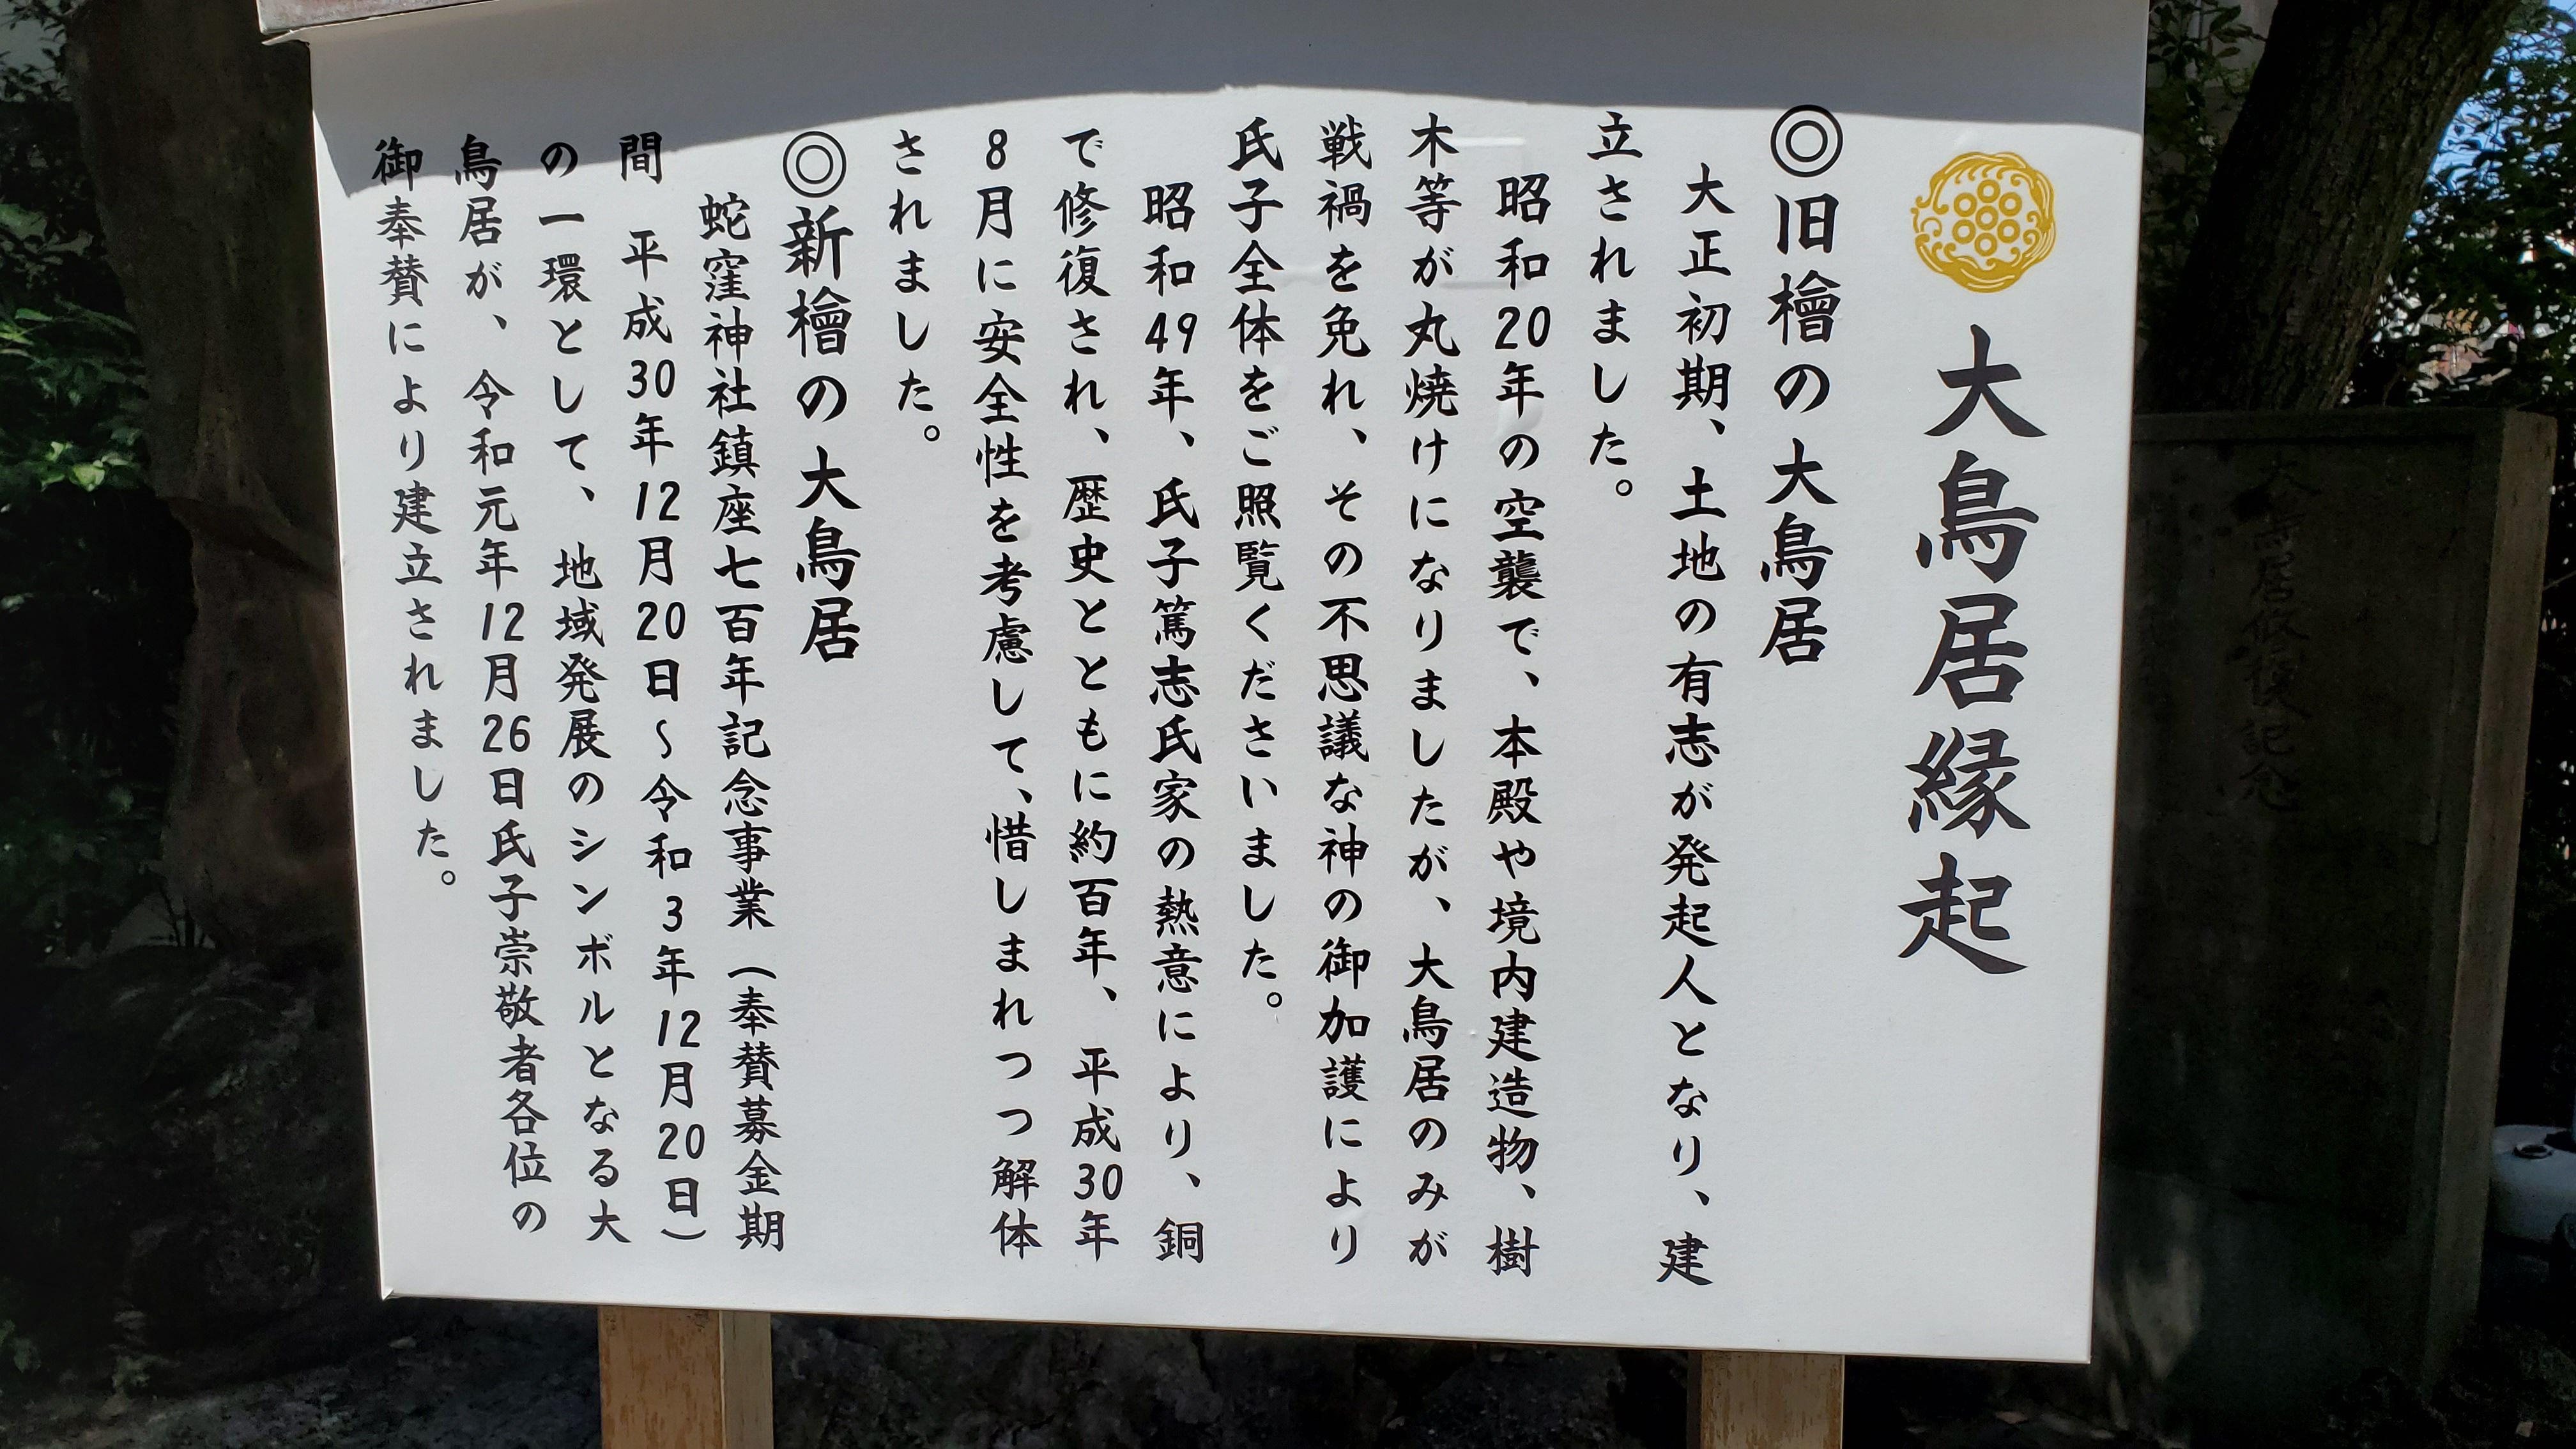 大鳥居縁起
◎旧檜の大鳥居
大正初期、土地の有志が発起人となり、建
立されました。
昭和20年の空襲で、本殿や境内建造物、樹
木等が丸焼けになりましたが、大鳥居のみが
戦禍を免れ、その不思議な神の御加護により
氏子全体をご照覧くださいました。
昭和49年、氏子篤志氏家の熱意により、銅
で修復され、歴史とともに約百年、平成30年
8月に安全性を考慮して、惜しまれつつ解体
されました。
◎新檜の大鳥居
蛇窪神社鎮座七百年記念事業(奉賛募金期
間 平成30年12月20日~令和3年12月20日)
の一環として、地域発展のシンボルとなる大
鳥居が、令和元年12月26日氏子崇敬者各位の
御奉賛により建立されました。
大鳥居修復記念